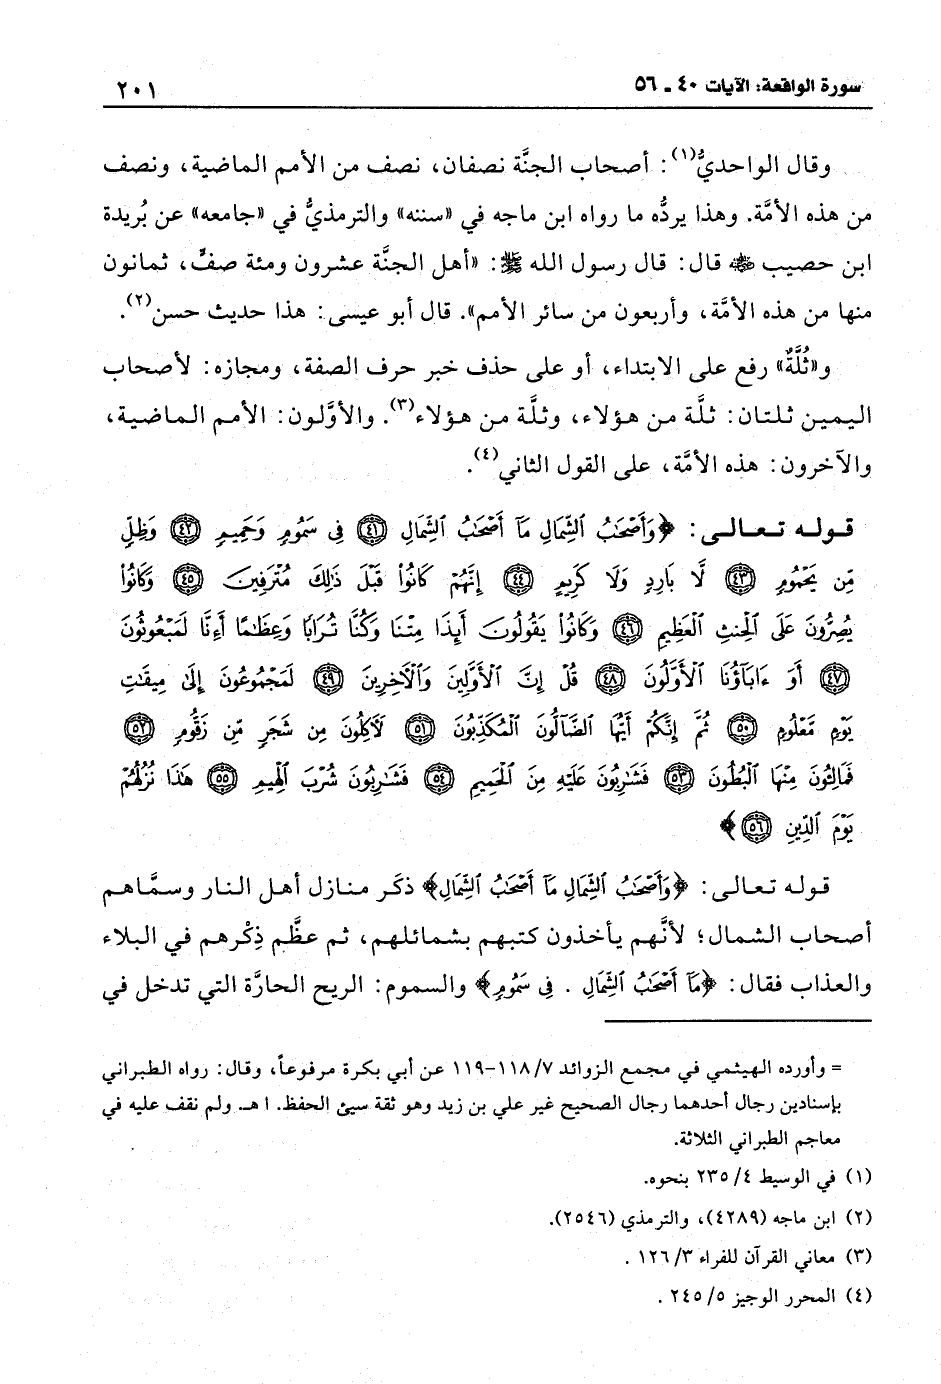 سورة الواقعة: الآيات ٤٠ ـ ٥٦ ٢٠١
وقال الواحديُّ(١): أصحاب الجنَّة نصفان، نصف من الأمم الماضية، ونصف
من هذه الأمَّة. وهذا يردُّه ما رواه ابن ماجه في «سننه» والترمذيُّ في «جامعه» عن بُريدة
ابن حصيب ﷺ قال: قال رسول الله ﷺ: «أهل الجنَّة عشرون ومئة صفٍّ، ثمانون
منها من هذه الأمَّة، وأربعون من سائر الأمم». قال أبو عيسى: هذا حديث حسن(٢).
و«ثُلَّةٌ» رفع على الابتداء، أو على حذف خبر حرف الصفة، ومجازه: لأصحاب
اليمين ثلتان: ثلَّة من هؤلاء، وثلَّة من هؤلاء(٣). والأوَّلون: الأمم الماضية،
والآخرون: هذه الأمَّة، على القول الثاني(٤).
قوله تعالى: ﴿وَأَصْحَٰبُ ٱلشِّمَالِ مَآ أَصْحَٰبُ ٱلشِّمَالِ ٤١ فِى سَمُومٍ وَحَمِيمٍ ٤٢ وَظِلٍّ
مِّن يَحْمُومٍ ٤٣ لَّا بَارِدٍ وَلَا كَرِيمٍ ٤٤ إِنَّهُمْ كَانُوا۟ قَبْلَ ذَٰلِكَ مُتْرَفِينَ ٤٥ وَكَانُوا۟
يُصِرُّونَ عَلَى ٱلْحِنثِ ٱلْعَظِيمِ ٤٦ وَكَانُوا۟ يَقُولُونَ أَئِذَا مِتْنَا وَكُنَّا تُرَابًا وَعِظَٰمًا أَءِنَّا لَمَبْعُوثُونَ
٤٧ أَوَ ءَابَآؤُنَا ٱلْأَوَّلُونَ ٤٨ قُلْ إِنَّ ٱلْأَوَّلِينَ وَٱلْءَاخِرِينَ ٤٩ لَمَجْمُوعُونَ إِلَىٰ مِيقَٰتِ
يَوْمٍ مَّعْلُومٍ ٥٠ ثُمَّ إِنَّكُمْ أَيُّهَا ٱلضَّآلُّونَ ٱلْمُكَذِّبُونَ ٥١ لَءَاكِلُونَ مِن شَجَرٍ مِّن زَقُّومٍ ٥٢
فَمَالِـُٔونَ مِنْهَا ٱلْبُطُونَ ٥٣ فَشَٰرِبُونَ عَلَيْهِ مِنَ ٱلْحَمِيمِ ٥٤ فَشَٰرِبُونَ شُرْبَ ٱلْهِيمِ ٥٥ هَٰذَا نُزُلُهُمْ
يَوْمَ ٱلدِّينِ ٥٦﴾
قوله تعالى: ﴿وَأَصْحَٰبُ ٱلشِّمَالِ مَآ أَصْحَٰبُ ٱلشِّمَالِ﴾ ذكَر منازل أهل النار وسمَّاهم
أصحاب الشمال؛ لأنَّهم يأخذون كتبهم بشمائلهم، ثم عظَّم ذِكْرهم في البلاء
والعذاب فقال: ﴿مَآ أَصْحَٰبُ ٱلشِّمَالِ . فِى سَمُومٍ﴾ والسموم: الريح الحارَّة التي تدخل في
= وأورده الهيثمي في مجمع الزوائد ٧/ ١١٨-١١٩ عن أبي بكرة مرفوعاً، وقال: رواه الطبراني
بإسنادين رجال أحدهما رجال الصحيح غير علي بن زيد وهو ثقة سيئ الحفظ. اهـ. ولم نقف عليه في
معاجم الطبراني الثلاثة.
(١) في الوسيط ٤/ ٢٣٥ بنحوه.
(٢) ابن ماجه (٤٢٨٩)، والترمذي (٢٥٤٦).
(٣) معاني القرآن للفراء ٣/ ١٢٦ .
(٤) المحرر الوجيز ٥/ ٢٤٥ .